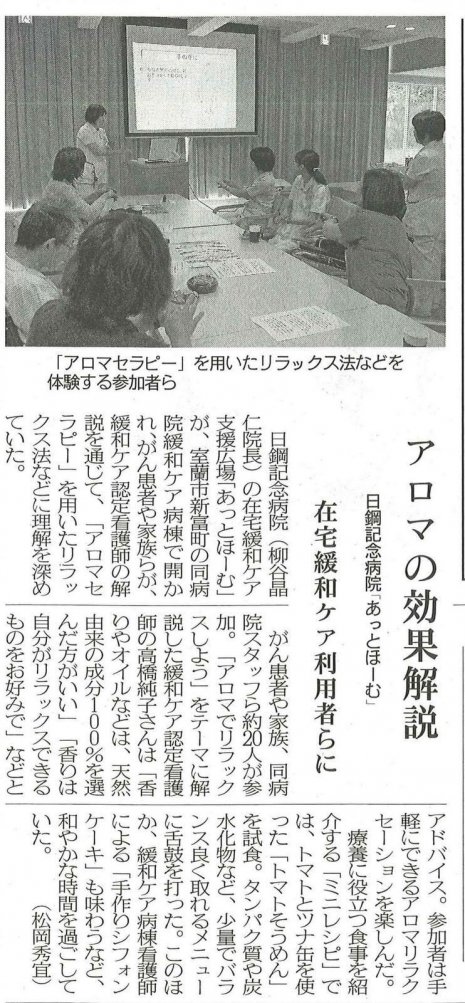 「アロマセラピー」を用いたリラックス法などを
体験する参加者ら
アロマの効果解説
日鋼記念病院「あっとほーむ」
在宅緩和ケア利用者らに
日鋼記念病院(柳谷晶
仁院長)の在宅緩和ケア
支援広場「あっとほーむ」
が、室蘭市新富町の同病
院緩和ケア病棟で開か
れ、がん患者や家族らが、
緩和ケア認定看護師の解
説を通じて、「アロマセ
ラピー」を用いたリラッ
クス法などに理解を深め
ていた。
がん患者や家族、同病
院スタッフら約20人が参
加。「アロマでリラック
スしよう」をテーマに解
説した緩和ケア認定看護
師の高橋純子さんは「香
りやオイルなどは、天然
由来の成分100%を選
んだ方がいい」「香りは
自分がリラックスできる
ものをお好みで」などと
アドバイス。参加者は手
軽にできるアロマリラク
セーションを楽しんだ。
療養に役立つ食事を紹
介する「ミニレシピ」で
は、トマトとツナ缶を使
った「トマトそうめん」
を試食。タンパク質や炭
水化物など、少量でバラ
ンス良く取れるメニュー
に舌鼓を打った。このほ
か、緩和ケア病棟看護師
による「手作りシフォン
ケーキ」も味わうなど、
和やかな時間を過ごして
いた。
(松岡秀宜)